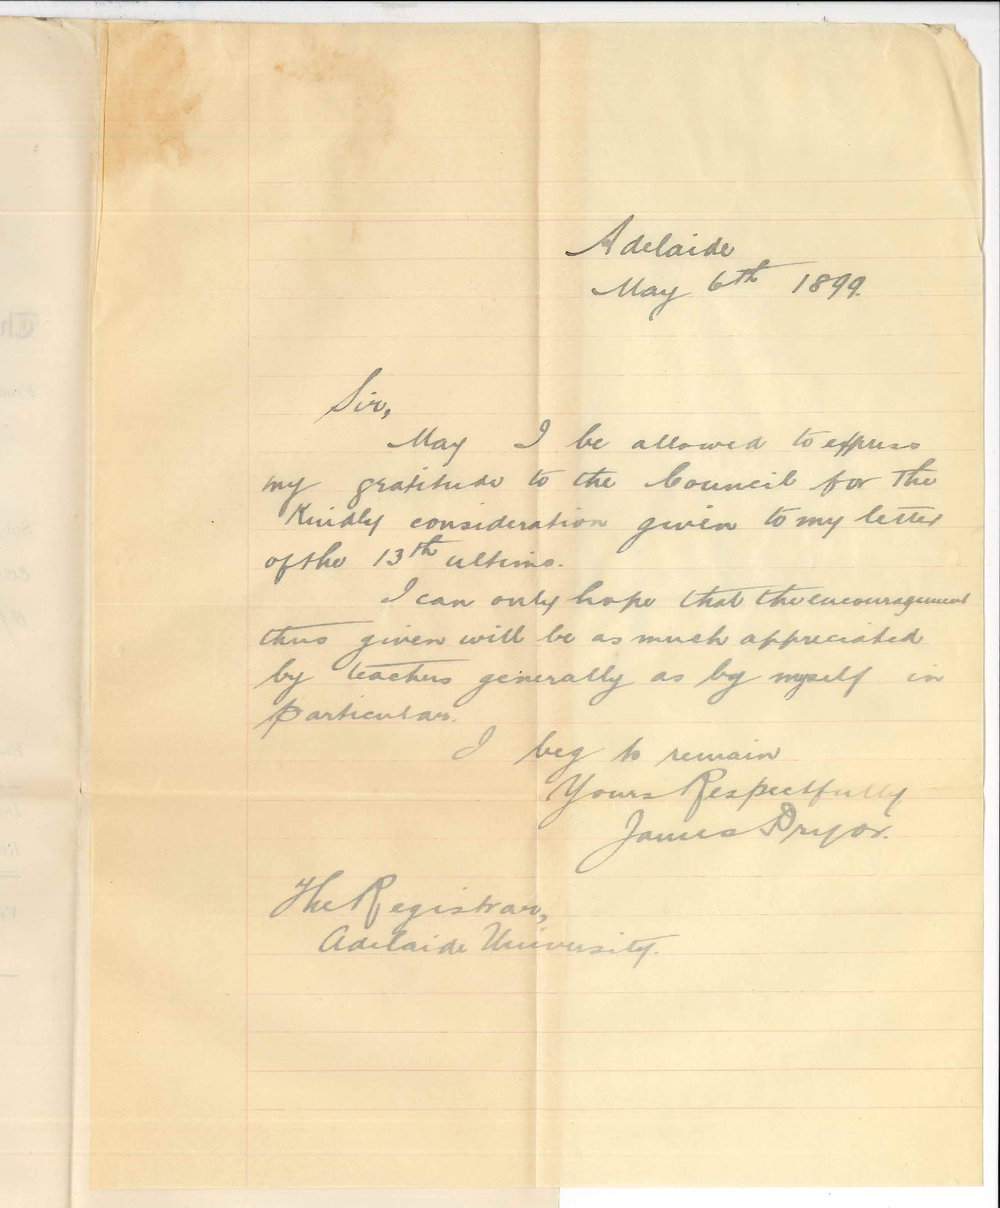 Adelaide
May 6th 1899.
Sir,
May I be allowed to express
my gratitude to the Council for the
Kindly consideration given to my letter
of the 13th ultimo.
I can only hope that the encouragement
thus given will be as much appreciated
by teachers generally as by myself in
particular.
I beg to remain
Yours Respectfully
James Pryor.
The Registrar,
Adelaide University.